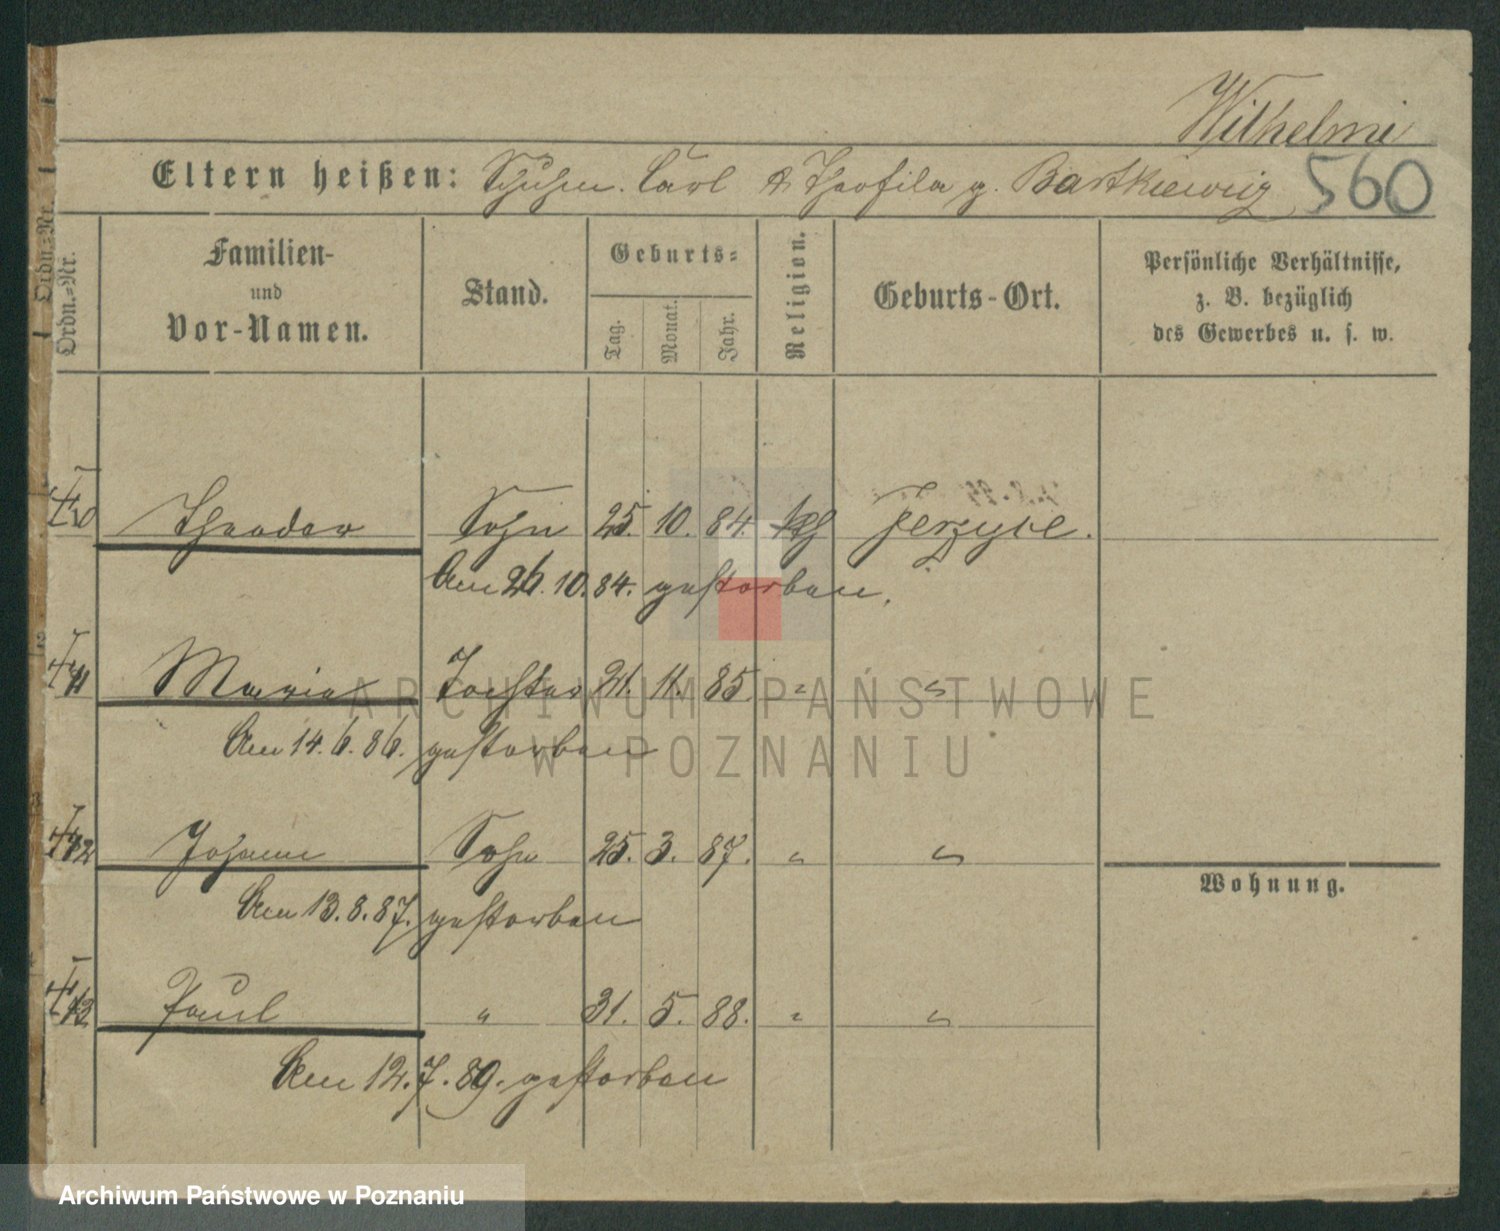 Wilhelmi
Eltern heißen: Schuhm. Carl & Theofila g. Bartkiewicz 560
Ordn.-Nr.
Ordn.-Nr.
Familien- und Vor-Namen.
Stand.
Geburts-
Tag. Monat. Jahr.
Religion.
Geburts-Ort.
Persönliche Verhältnisse,
z. B. bezüglich
des Gewerbes u. s. w.
Theodor Sohn 25. 10. 84. kth Jerzyce.
Am 26.10.84. gestorben.
11 Maria Tochter 21. 11. 85. " "
Am 14.6.86. gestorben
12 Johann Sohn 25. 3. 87. " "
Am 13.8.87. gestorben
Wohnung.
Paul " 31. 5. 88. " "
Am 12.7.89. gestorben
ARCHIWUM PAŃSTWOWE
W POZNANIU
Archiwum Państwowe w Poznaniu